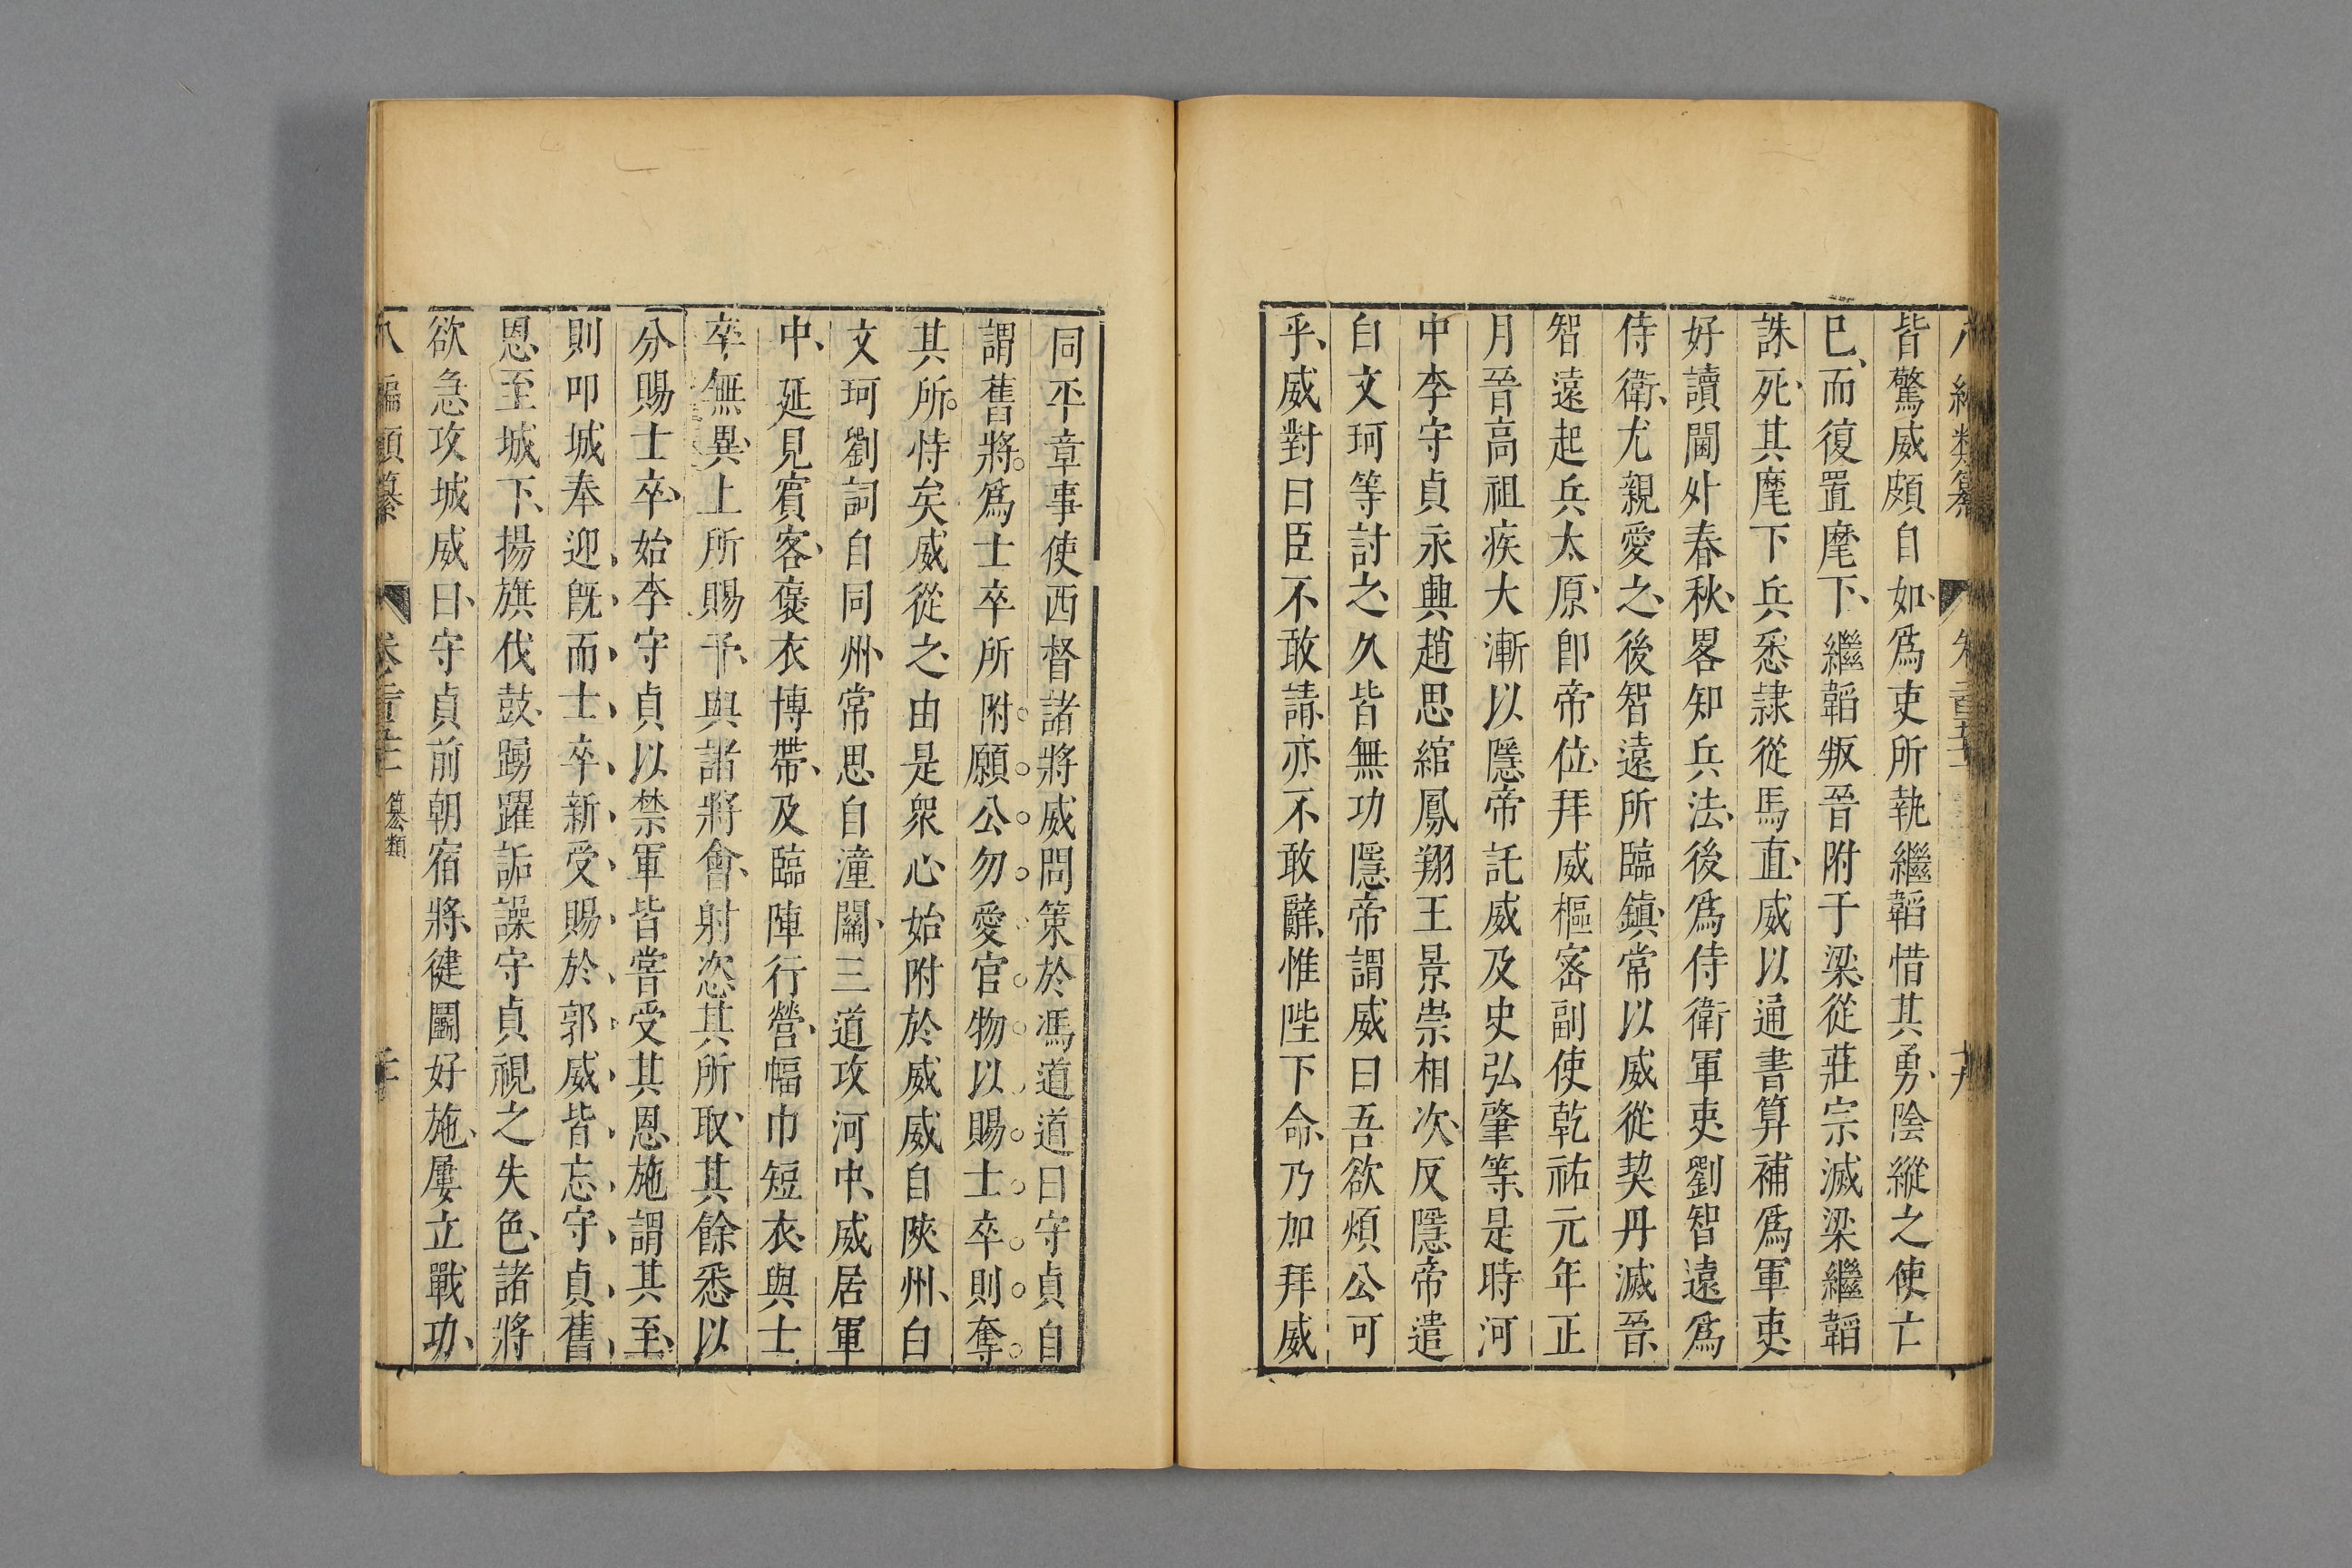 皆驚威頗自如爲吏所執繼韜惜其勇陰縱之使亡
已而復置麾下繼韜叛晉附于梁從莊宗滅梁繼韜
誅死其麾下兵悉隷從馬直威以通書算補爲軍吏
好讀閫外春秋畧知兵法後爲侍衛軍吏劉智遠爲
侍衛尤親愛之後智遠所臨鎮常以威從契丹滅晉
智遠起兵太原卽帝位拜威樞密副使乾祐元年正
月晉高祖疾大漸以隱帝託威及史弘肇等是時河
中李守貞永興趙思綰鳳翔王景崇相次反隱帝遣
白文珂等討之久皆無功隱帝謂威曰吾欲煩公可
乎威對曰臣不敢請亦不敢辭惟陛下命乃加拜威
同平章事使西督諸將威問策於馮道道曰守貞自
謂舊將爲士卒所附願公勿愛官物以賜士卒則奪
其所恃矣威從之由是衆心始附於威威自陝州白
文珂劉詞自同州常思自潼關三道攻河中威居軍
中延見賓客褒衣博帶及臨陣行營幅巾短衣與士
卒無異上所賜予與諸將會射恣其所取其餘悉以
分賜士卒始李守貞以禁軍皆嘗受其恩施謂其至
則叩城奉迎旣而士卒新受賜於郭威皆忘守貞舊
恩至城下揚旗伐鼓踴躍詬譟守貞視之失色諸將
欲急攻城威曰守貞前朝宿將健鬭好施屢立戰功